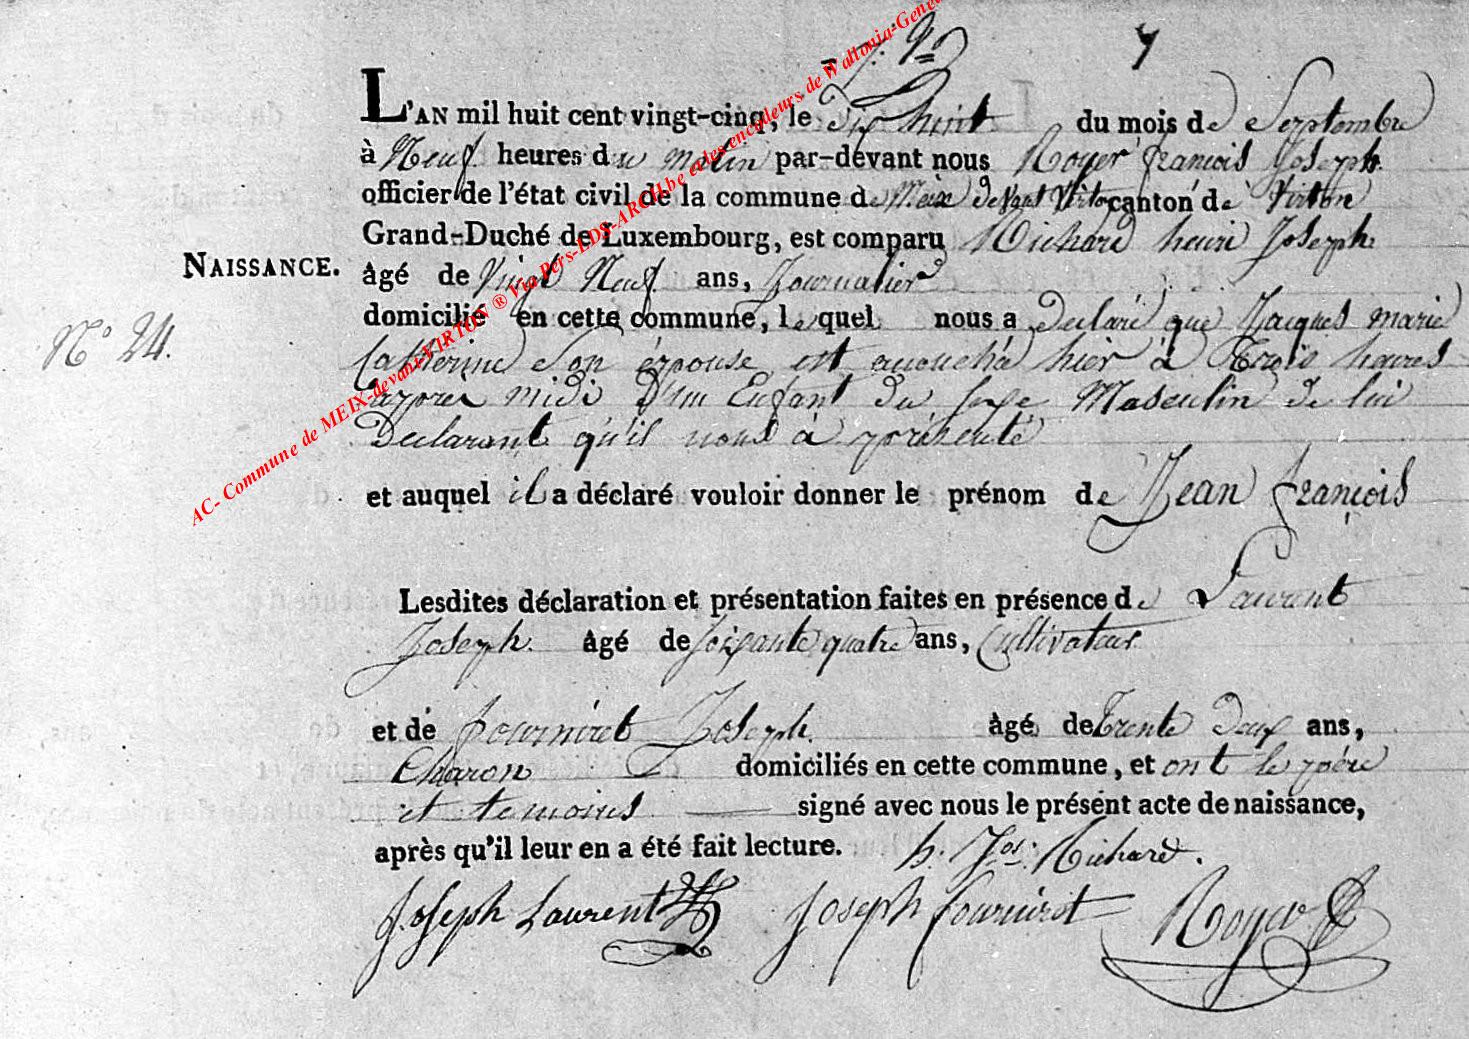 7
L'AN mil huit cent vingt-cinq, le dix huit du mois de Septembre
à Neuf heures du matin par-devant nous Royer françois Joseph
officier de l'état civil de la commune de Meix devant Virton canton de Virton
Grand-Duché de Luxembourg, est comparu Richard henri Joseph
NAISSANCE.
âgé de Vingt Neuf ans, Journalier
N° 24.
domicilié en cette commune, lequel nous a declaré que Jacques marie
Catherine Son épouse est accouchée hier à Trois heures
apres midi d'un Enfant du sexe Masculin de lui
Declarant qu'il nous à présenté
et auquel il a déclaré vouloir donner le prénom de Jean françois
Lesdites déclaration et présentation faites en présence de Laurent
Joseph. âgé de soixante quatre ans, Cultivateur
et de fourniret Joseph. âgé de Trente Deux ans,
Charon domiciliés en cette commune, et ont le père
et temoins signé avec nous le présent acte de naissance,
après qu'il leur en a été fait lecture. h. Jos: Richard.
Joseph Laurent Joseph fourniret Royer
AC- Commune de MEIX-devant-VIRTON ® Via Pers-LDS-ARCH.be et les encodeurs de Wallonia-Genea